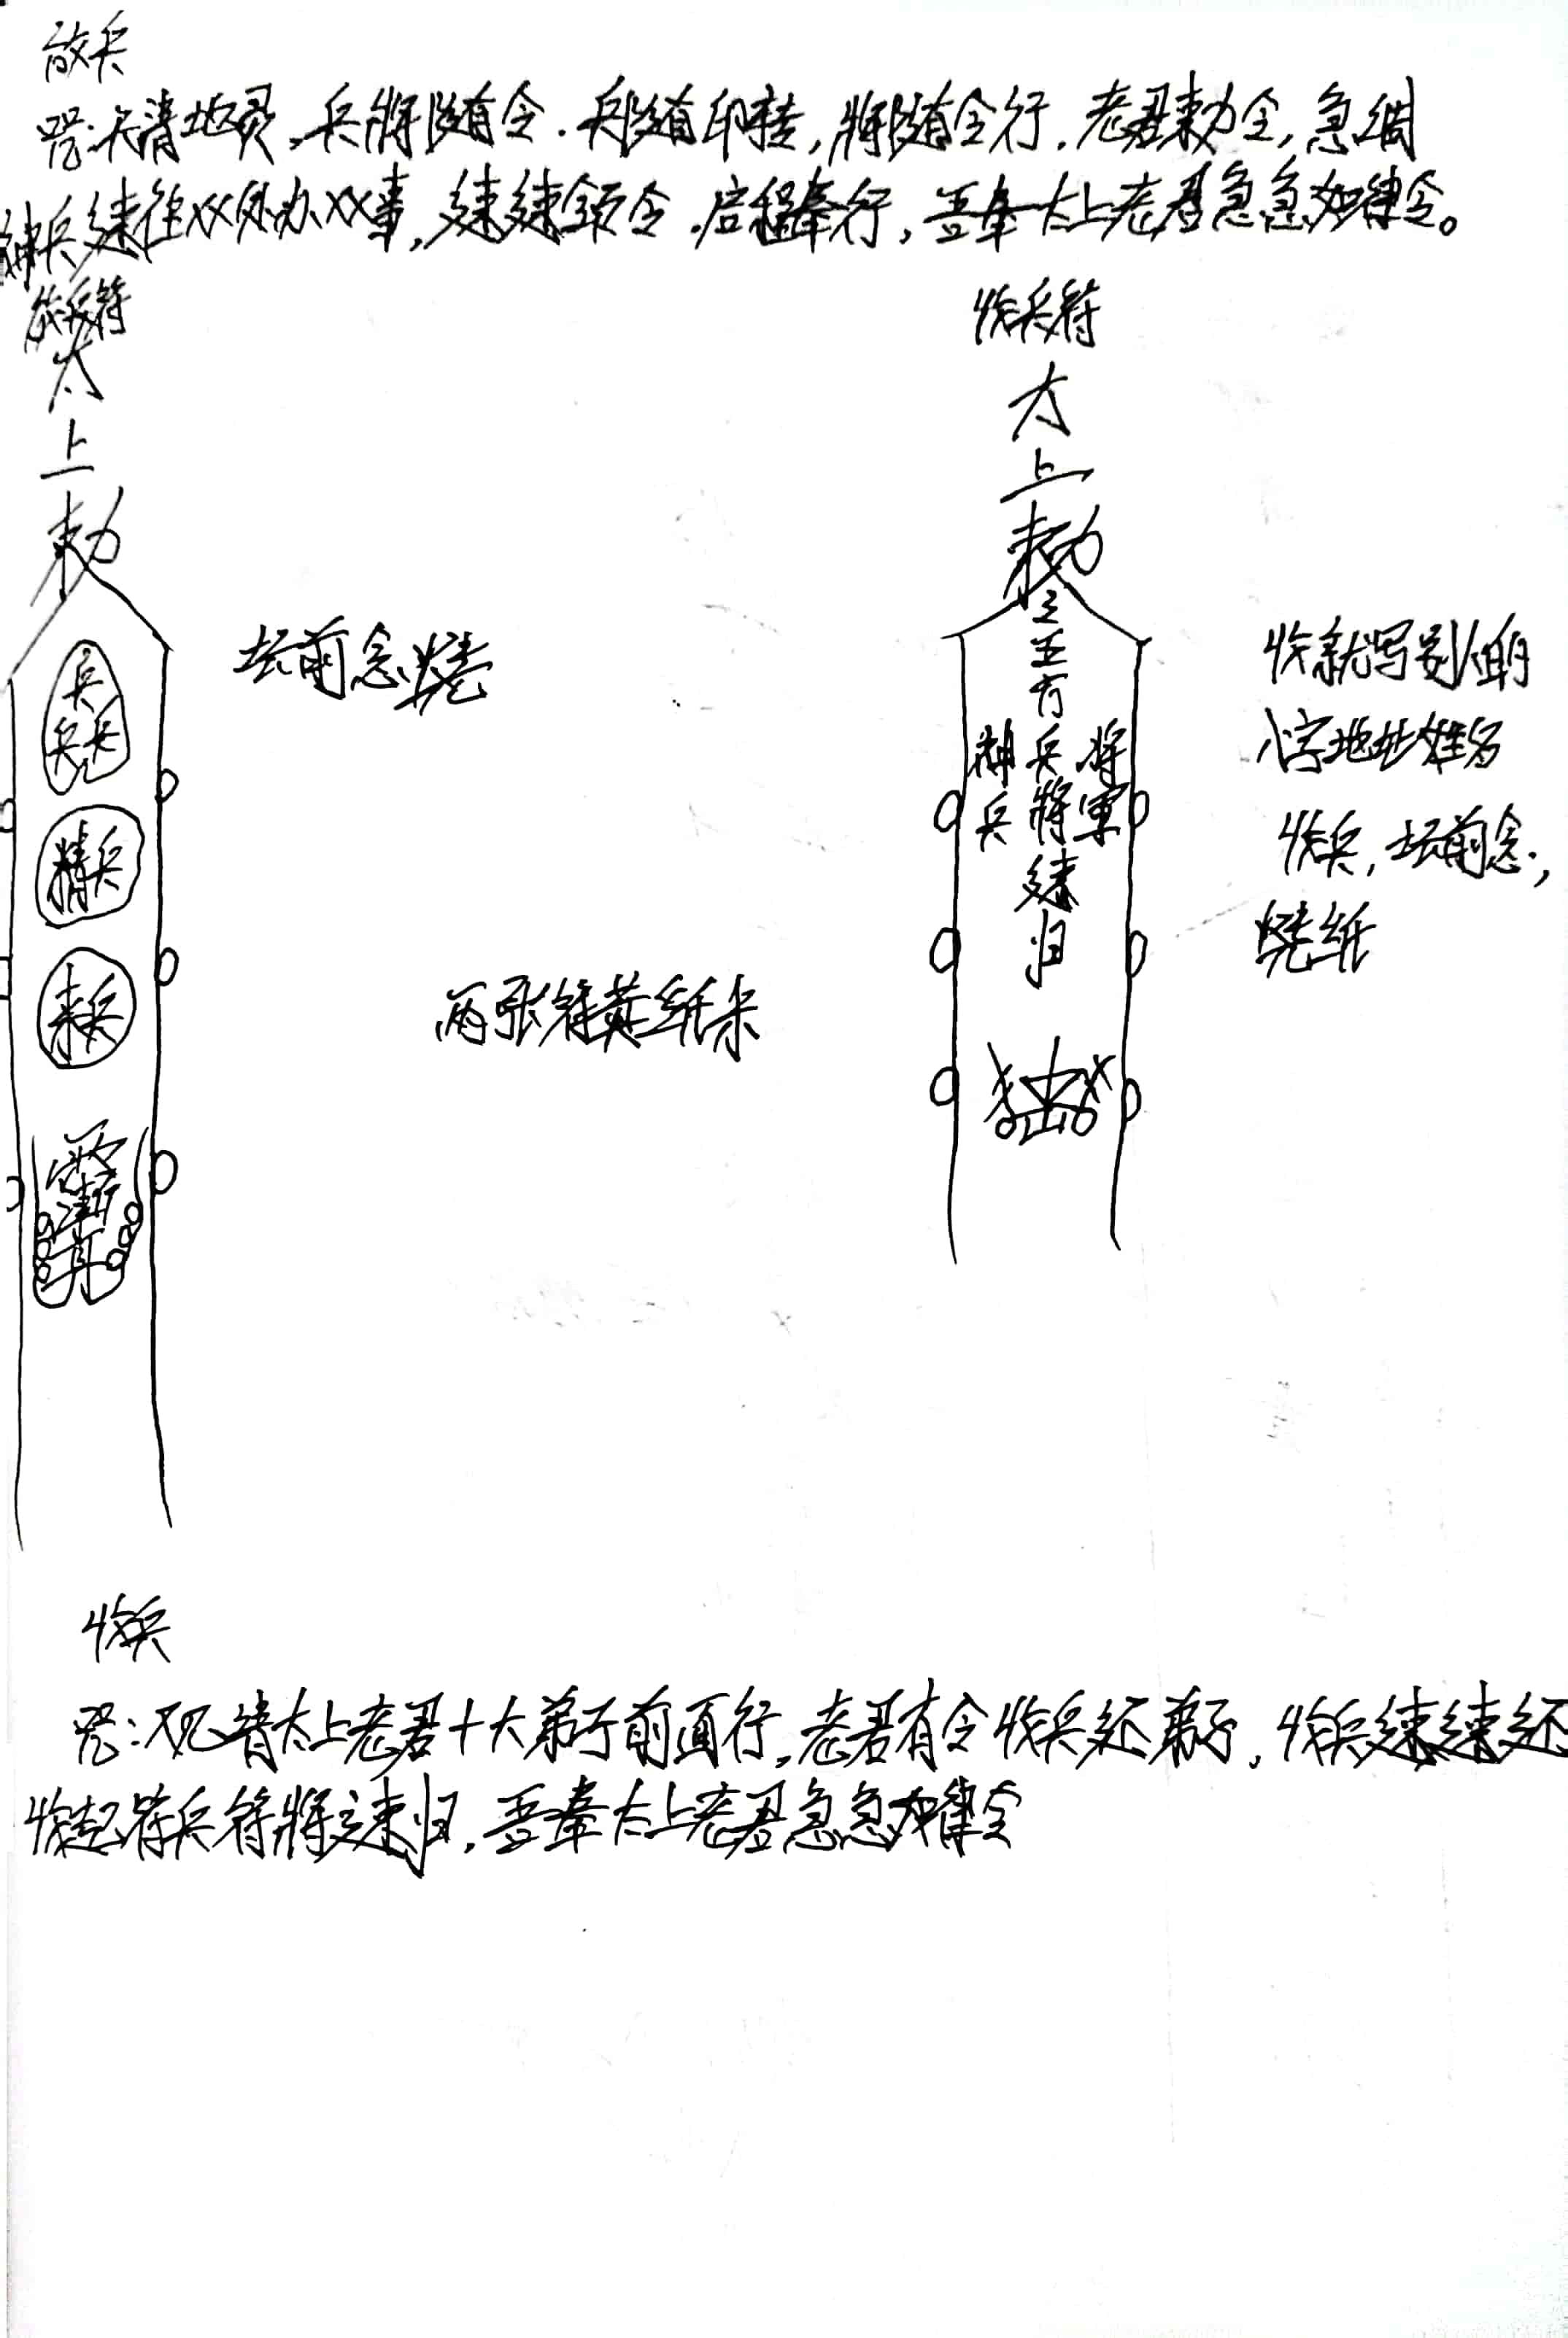 放兵
咒:天清地灵,兵將随令.兵随印转,將随令行.老君敕令,急调
神兵速往XX处办XX事,速速领令.启程奉行,吾奉太上老君急急如律令。
放兵符
太
上
敕
兵
兵兵
精兵
来兵
坛前念,烧
两张符黄纸朱
收兵符
太
上
敕
令
五
方
神兵將
兵將軍
速
归
收就写别人的
八字地址姓名
收兵,坛前念,
烧纸
收兵
咒:又请太上老君十大弟子前面行,老君有令收兵还弟子,收兵速速还
收起符兵符將速归,吾奉太上老君急急如律令